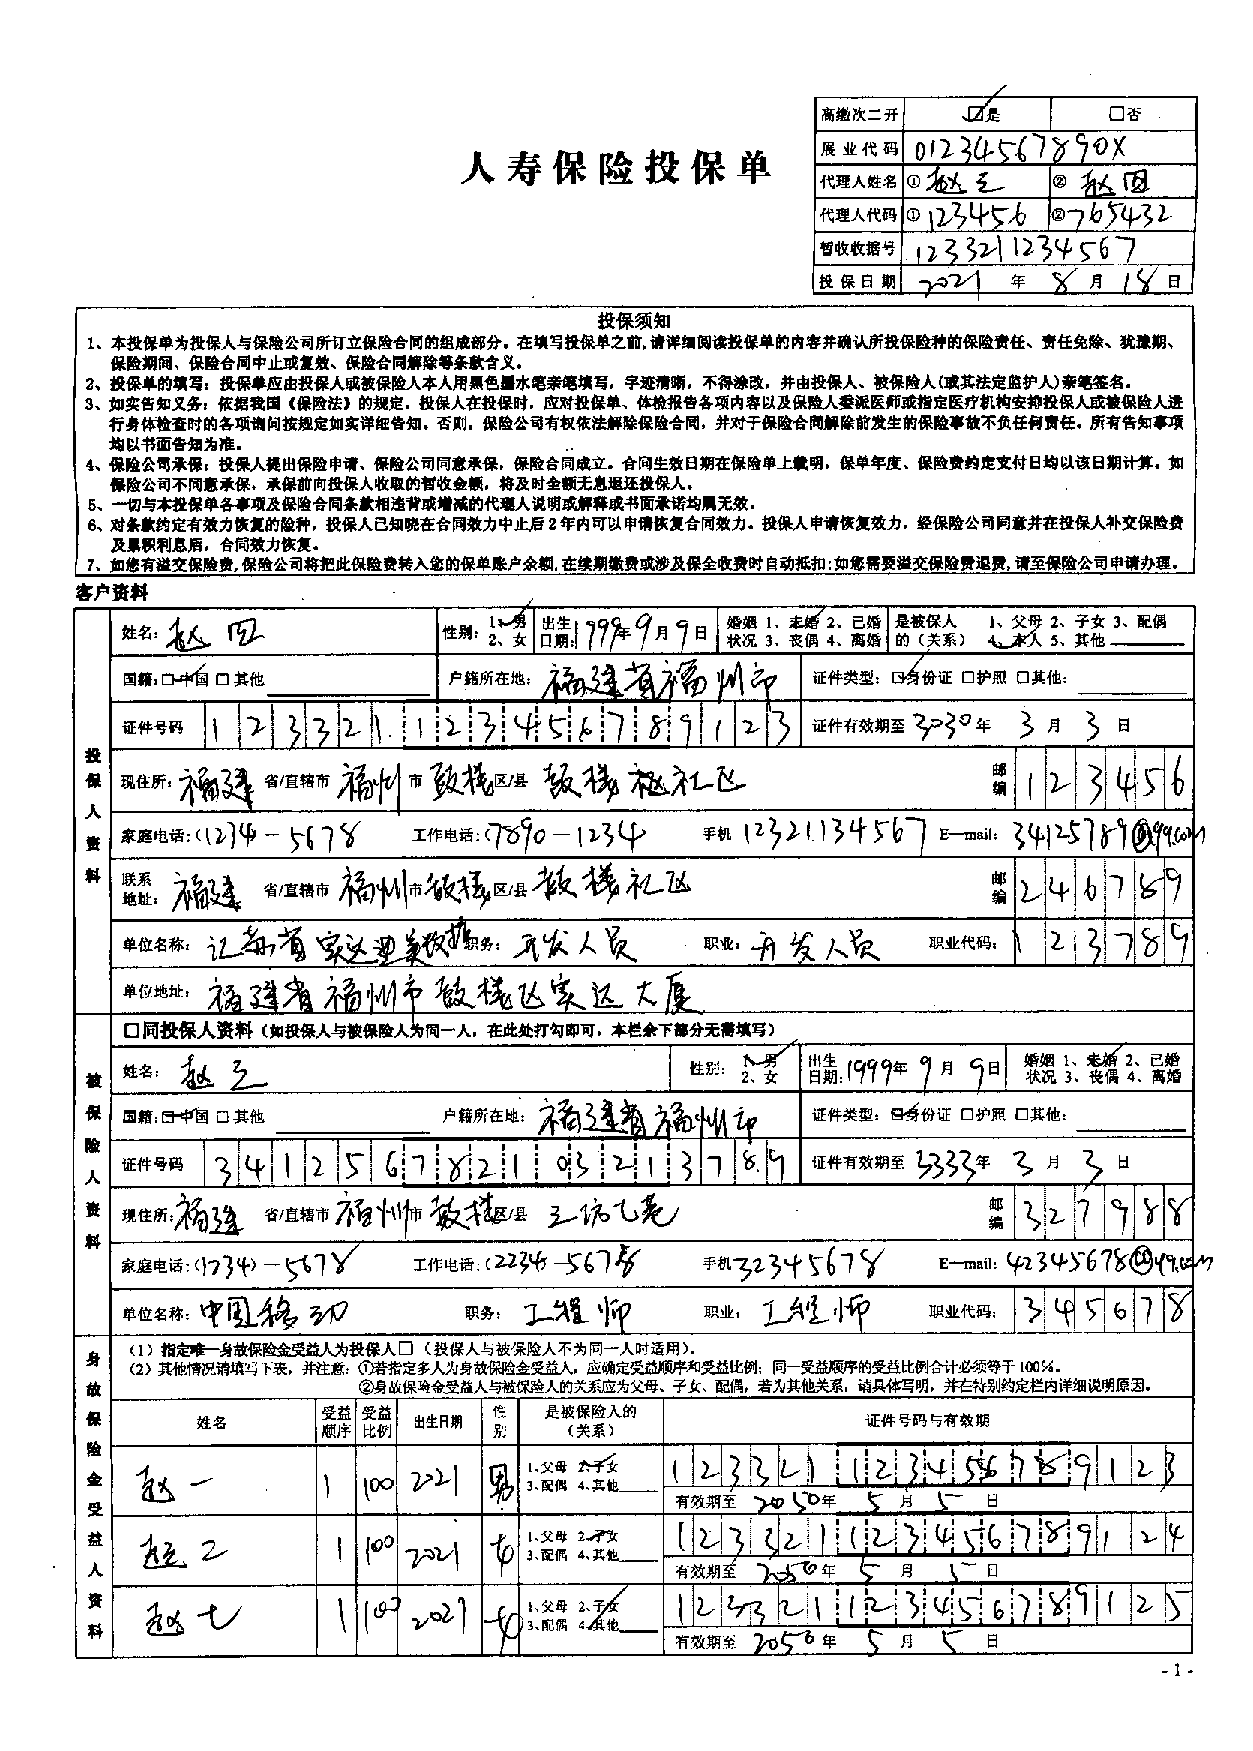 高缴次二开 ☑是 □否
展业代码 01234567890X
人寿保险投保单
代理人姓名 ① 赵三 ② 赵四
代理人代码 ① 123456 ② 765432
暂收收据号 1233211234567
投保日期 2021 年 8 月 18 日
投保须知
1、本投保单为投保人与保险公司所订立保险合同的组成部分。在填写投保单之前,请详细阅读投保单的内容并确认所投保险种的保险责任、责任免除、犹豫期、
保险期间、保险合同中止或复效、保险合同解除等条款含义。
2、投保单的填写：投保单应由投保人或被保险人本人用黑色墨水笔亲笔填写，字迹清晰，不得涂改，并由投保人、被保险人(或其法定监护人)亲笔签名。
3、如实告知义务：依据我国《保险法》的规定，投保人在投保时，应对投保单、体检报告各项内容以及保险人委派医师或指定医疗机构安排投保人或被保险人进
行身体检查时的各项询问按规定如实详细告知。否则，保险公司有权依法解除保险合同，并对于保险合同解除前发生的保险事故不负任何责任。所有告知事项
均以书面告知为准。
4、保险公司承保：投保人提出保险申请、保险公司同意承保，保险合同成立。合同生效日期在保险单上载明，保单年度、保险费约定支付日均以该日期计算。如
保险公司不同意承保，承保前向投保人收取的暂收金额，将及时全额无息退还投保人。
5、一切与本投保单各事项及保险合同条款相违背或增减的代理人说明或解释或书面承诺均属无效。
6、对条款约定有效力恢复的险种，投保人已知晓在合同效力中止后2年内可以申请恢复合同效力。投保人申请恢复效力，经保险公司同意并在投保人补交保险费
及累积利息后，合同效力恢复。
7、如您有溢交保险费,保险公司将把此保险费转入您的保单账户余额,在续期缴费或涉及保全收费时自动抵扣;如您需要溢交保险费退费,请至保险公司申请办理。
客户资料
投保人资料
姓名：赵四 性别：1、男 2、女 出生日期：1999年9月9日 婚姻状况 1、未婚 2、已婚 3、丧偶 4、离婚 是被保人的（关系） 1、父母 2、子女 3、配偶 4、本人 5、其他
国籍：☑中国 □其他 户籍所在地：福建省福州市 证件类型：☑身份证 □护照 □其他：
证件号码 123321123456789123 证件有效期至 3030年 3 月 3 日
现住所：福建 省/直辖市 福州 市 鼓楼 区/县 鼓楼社区 邮编 123456
家庭电话：(1234)-5678 工作电话：(7890-1234 手机 12321134567 E-mail：34125789@99.com
联系地址：福建 省/直辖市 福州 市 鼓楼 区/县 鼓楼社区 邮编 246789
单位名称： 职务：开发人员 职业：开发人员 职业代码：123789
单位地址：福建省福州市鼓楼区实达大厦
被保险人资料
□同投保人资料（如投保人与被保险人为同一人，在此处打勾即可，本栏余下部分无需填写）
姓名：赵三 性别：1、男 2、女 出生日期：1999年9月9日 婚姻状况 1、未婚 2、已婚 3、丧偶 4、离婚
国籍：☑中国 □其他 户籍所在地：福建省福州市 证件类型：☑身份证 □护照 □其他：
证件号码 341256782103213789 证件有效期至 3333年 3 月 3 日
现住所：福建 省/直辖市 福州 市 鼓楼 区/县 三坊七巷 邮编 327988
家庭电话：(1234)-5678 工作电话：(2234)-5678 手机 32345678 E-mail：42345678@49.com
单位名称：中国移动 职务：工程师 职业：工程师 职业代码：345678
身故保险金受益人资料
（1）指定唯一身故保险金受益人为投保人□（投保人与被保险人不为同一人时适用）。
（2）其他情况请填写下表，并注意：①若指定多人为身故保险金受益人，应确定受益顺序和受益比例；同一受益顺序的受益比例合计必须等于100%。
②身故保险金受益人与被保险人的关系应为父母、子女、配偶，若为其他关系，请具体写明，并在特别约定栏内详细说明原因。
姓名 受益顺序 受益比例 出生日期 性别 是被保险人的（关系） 证件号码与有效期
赵一 1 100 2021 男 1、父母 2、子女 3、配偶 4、其他 123321123456789123
有效期至 2050年 5 月 5 日
赵二 1 100 2021 女 1、父母 2、子女 3、配偶 4、其他 123321123456789124
有效期至 2050年 5 月 5 日
赵七 1 100 2021 女 1、父母 2、子女 3、配偶 4、其他 123321123456789125
有效期至 2050年 5 月 5 日
- 1 -